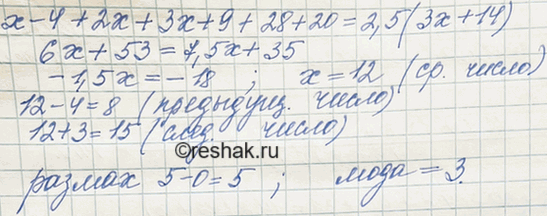 x-4+2x+3x+9+28+20=2,5(3x+14)
6x+53=7,5x+35
-1,5x=-18 ; x=12 (ср. число)
12-4=8 (предыдущ. число)
12+3=15 (след. число)
©reshak.ru
размах 5-0=5 ; мода=3.